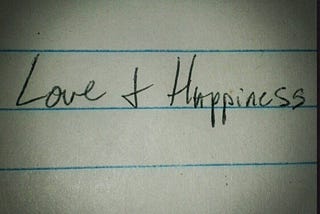 Love + Happiness